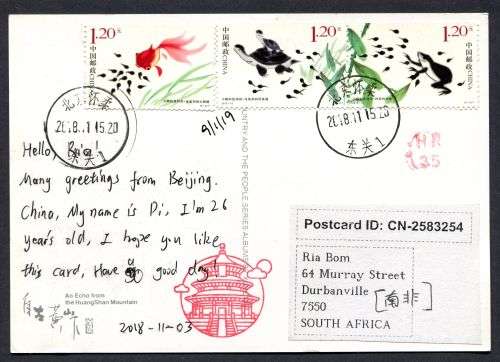 1.20元
中国邮政 CHINA
1.20元
中国邮政 CHINA
1.20元
2018.11.15.20
东关1
2018.11.15.20
东关1
9/1/19
HR
125
Hello, Ria!
Many greetings from Beijing.
China, My name is Di, I'm 26
year's old, I hope you like
this card, Have a good day!
2018-11-03
An Echo from
the HuangShan Mountain
COUNTRY AND THE PEOPLE SERIES ALBUM
Postcard ID: CN-2583254
Ria Bom
64 Murray Street
Durbanville
7550
SOUTH AFRICA
[南非]